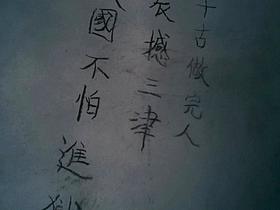 千古做完人
震撼三津
國不怕進